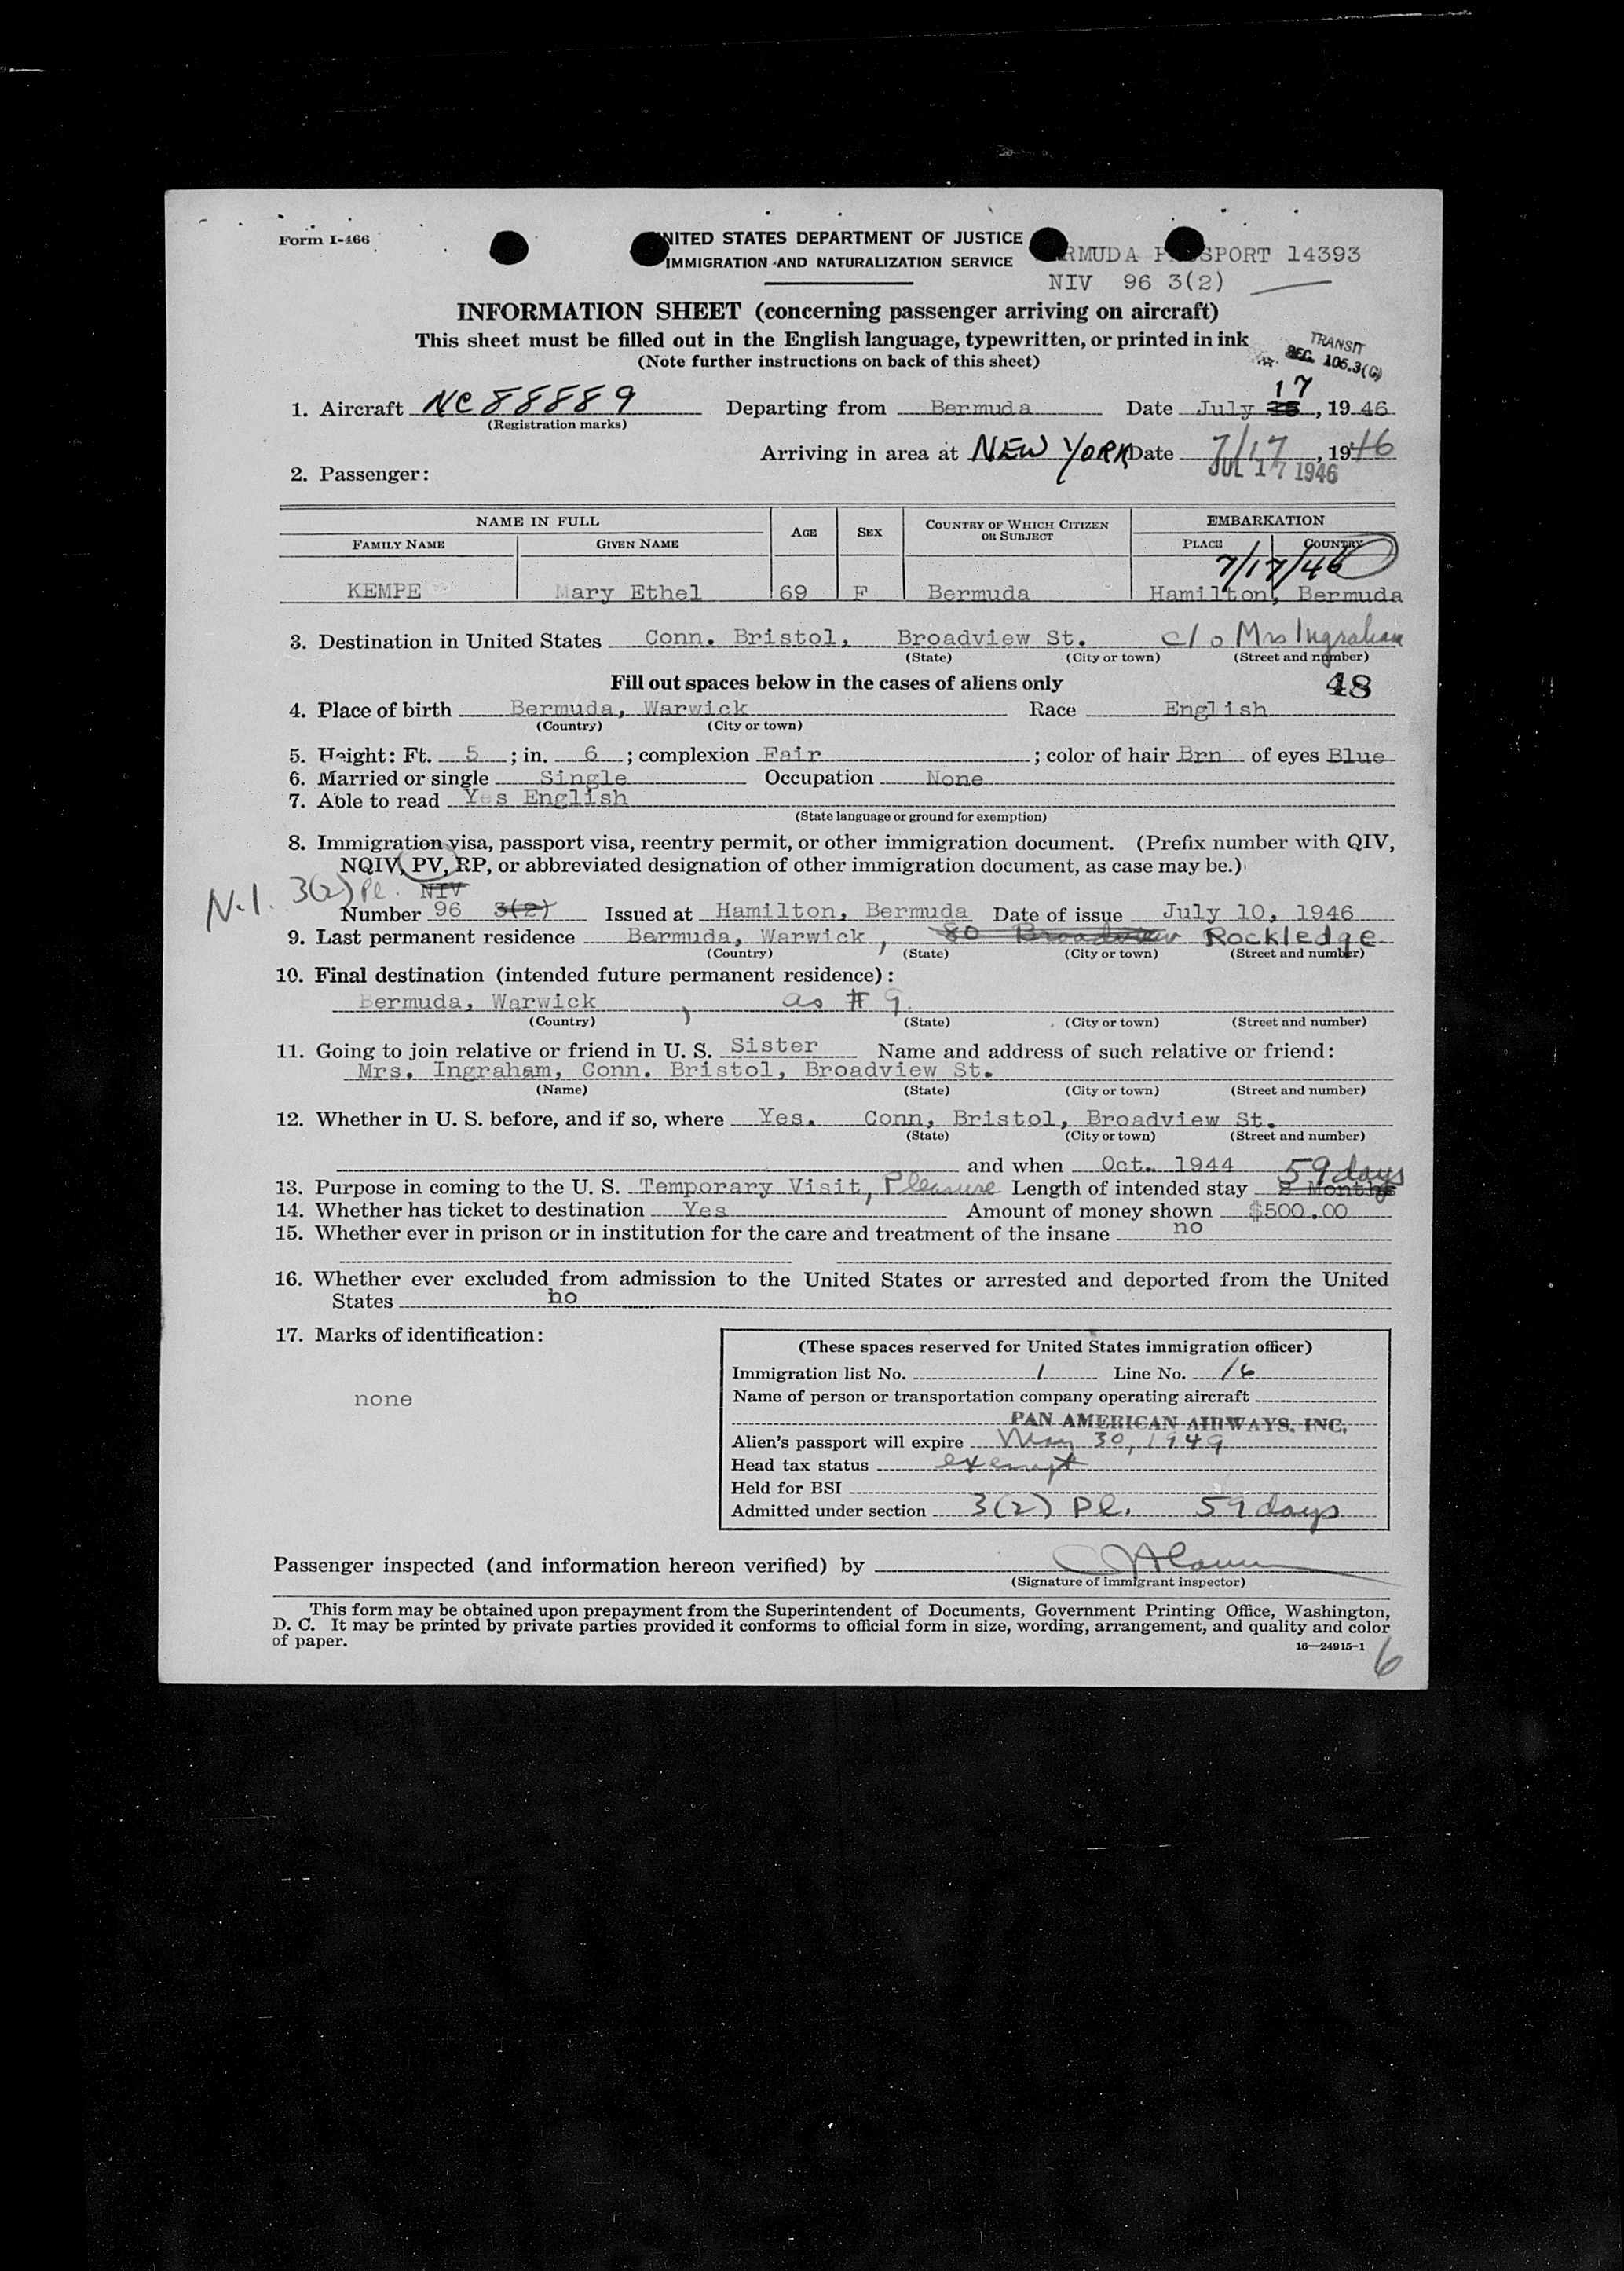 Form I-466
NITED STATES DEPARTMENT OF JUSTICE
IMMIGRATION AND NATURALIZATION SERVICE
RMUDA P SPORT 14393
NIV 96 3(2)
INFORMATION SHEET (concerning passenger arriving on aircraft)
This sheet must be filled out in the English language, typewritten, or printed in ink
(Note further instructions on back of this sheet)
TRANSIT
SEC. 106.3(G)
1. Aircraft NC88889 Departing from Bermuda Date July 17, 1946
(Registration marks)
Arriving in area at NEW YORK Date 7/17, 1946
JUL 17 1946
2. Passenger:
NAME IN FULL AGE SEX COUNTRY OF WHICH CITIZEN OR SUBJECT EMBARKATION
FAMILY NAME GIVEN NAME PLACE COUNTRY
7/17/46
KEMPE Mary Ethel 69 F Bermuda Hamilton, Bermuda
3. Destination in United States Conn. Bristol, Broadview St. c/o Mrs Ingraham
(State) (City or town) (Street and number)
Fill out spaces below in the cases of aliens only 48
4. Place of birth Bermuda, Warwick Race English
(Country) (City or town)
5. Height: Ft. 5 ; in. 6 ; complexion Fair ; color of hair Brn of eyes Blue
6. Married or single Single Occupation None
7. Able to read Yes English
(State language or ground for exemption)
8. Immigration visa, passport visa, reentry permit, or other immigration document. (Prefix number with QIV,
NQIV, PV, RP, or abbreviated designation of other immigration document, as case may be.)
N.I. 3(2) Pl. NIV
Number 96 3(2) Issued at Hamilton, Bermuda Date of issue July 10, 1946
9. Last permanent residence Bermuda, Warwick, 80 Broadview Rockledge
(Country) (State) (City or town) (Street and number)
10. Final destination (intended future permanent residence):
Bermuda, Warwick, as # 9.
(Country) (State) (City or town) (Street and number)
11. Going to join relative or friend in U. S. Sister Name and address of such relative or friend:
Mrs. Ingraham, Conn. Bristol, Broadview St.
(Name) (State) (City or town) (Street and number)
12. Whether in U. S. before, and if so, where Yes. Conn, Bristol, Broadview St.
(State) (City or town) (Street and number)
and when Oct. 1944 59 days
13. Purpose in coming to the U. S. Temporary Visit, Pleasure Length of intended stay Months
14. Whether has ticket to destination Yes Amount of money shown $500.00
15. Whether ever in prison or in institution for the care and treatment of the insane no
16. Whether ever excluded from admission to the United States or arrested and deported from the United
States no
17. Marks of identification:
none
(These spaces reserved for United States immigration officer)
Immigration list No. 1 Line No. 16
Name of person or transportation company operating aircraft
PAN AMERICAN AIRWAYS, INC.
Alien's passport will expire May 30, 1949
Head tax status exempt
Held for BSI
Admitted under section 3(2) Pl. 59 days
Passenger inspected (and information hereon verified) by
(Signature of immigrant inspector)
This form may be obtained upon prepayment from the Superintendent of Documents, Government Printing Office, Washington,
D. C. It may be printed by private parties provided it conforms to official form in size, wording, arrangement, and quality and color
of paper.
16—24915-1
6